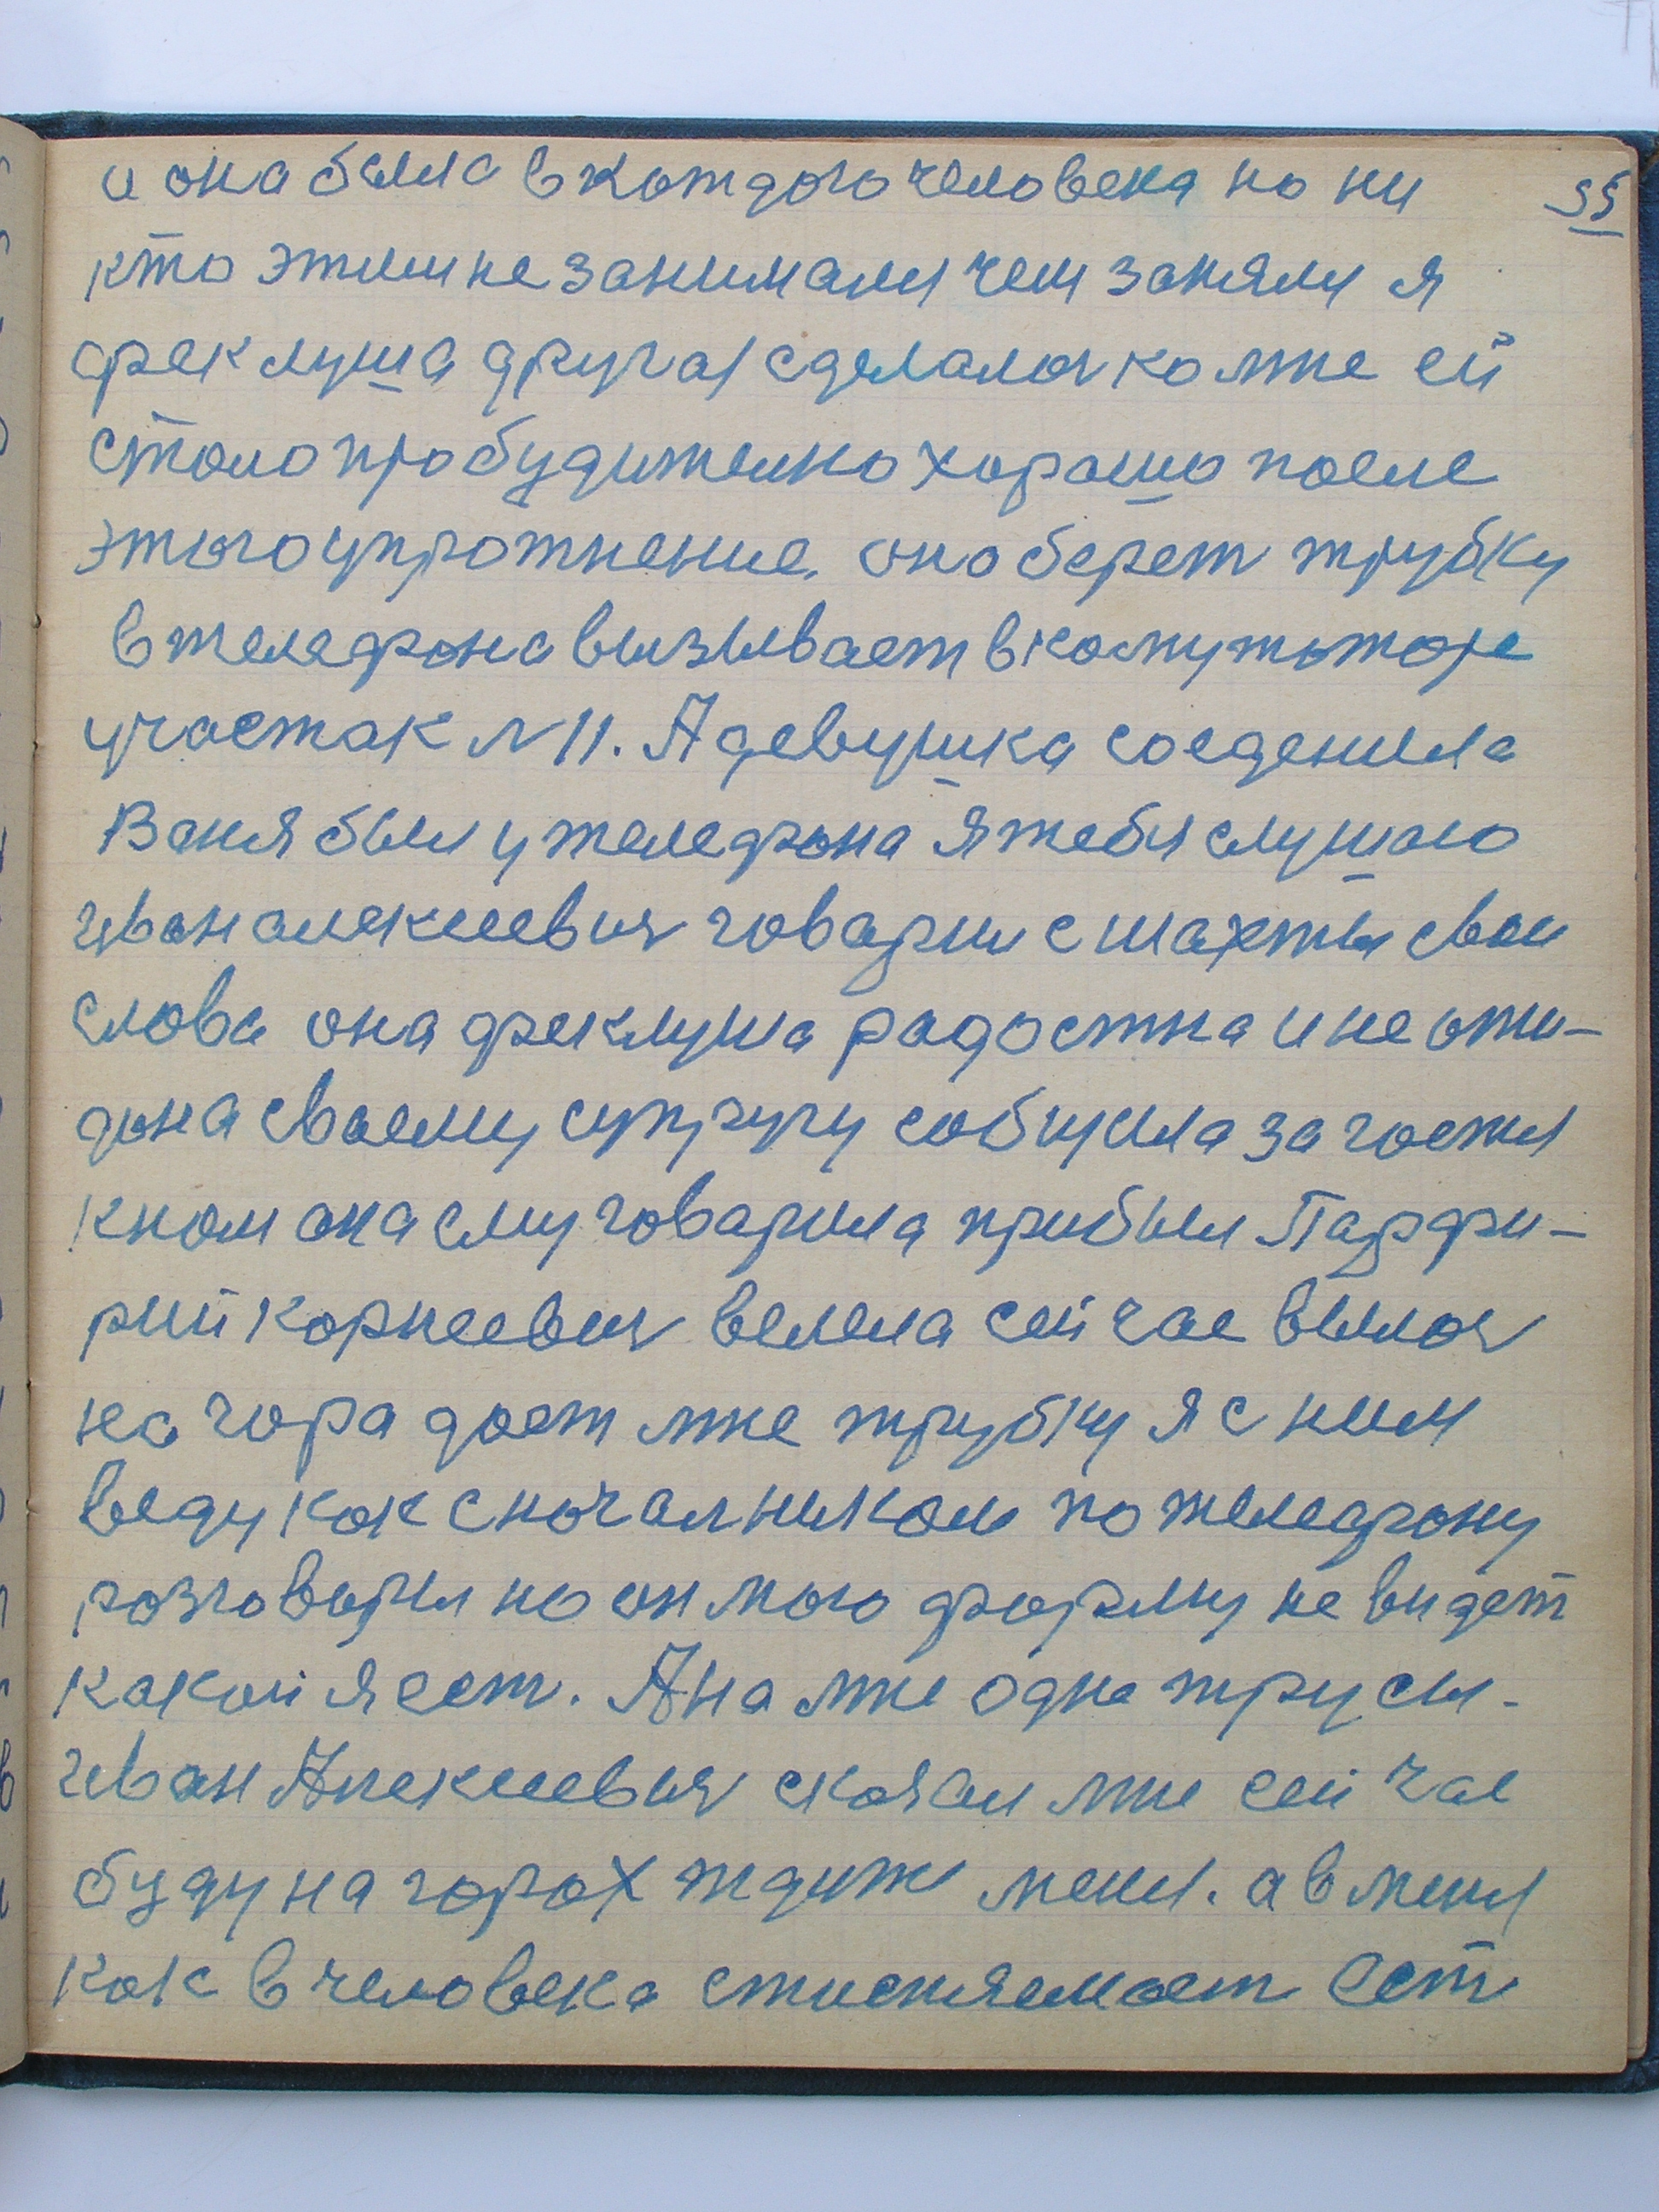 и она была в котдого человека но ни
35
кто этим не занимали чем заняли я
феклуша другая сделалоя ко мне ей
стало пробудително хорашо после
этого упротнение. оно берет трубку
в телефона вызывает в комутаторе
участок N 11. А девушка соеденила
Ваня был у телефона я тебя слушаю
Иван алексеевич говарил с шахты свои
слова она феклуша радостна и не ожи-
дона своему супругу собщила за гостя
к ном она ему говарила прибыл Парфи-
рий Корнеевич велела сейчас вылоз
на гора дает мне трубку я с ним
веду как с начальником по телефону
розговоры но он мою форму не видет
какой я ест. А на мне одне трусы.
Иван Алексеевич сказал мне сейчас
буду на горох ждите меня. а в меня
как в человека стисняемост ест